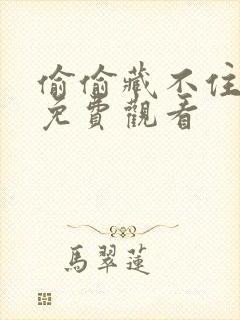 偷偷藏不住
免費觀看
馬翠蓮